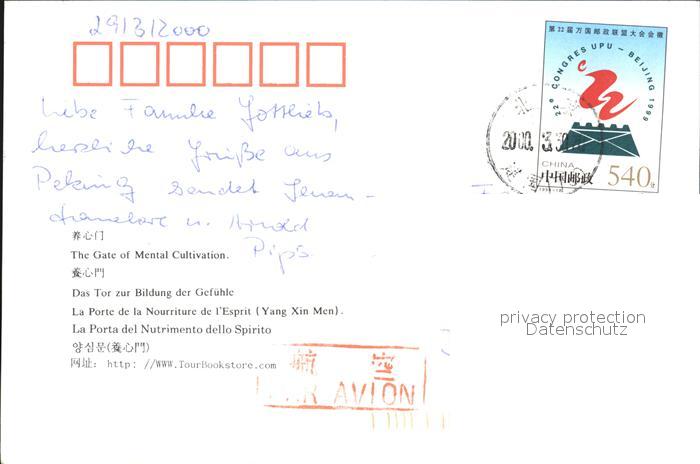 29/3/2000
Liebe Familie Gottlieb,
herzliche Grüße aus
Peking sendet Ihnen
Hannelore u. Arnold
Pips
养心门
The Gate of Mental Cultivation.
養心門
Das Tor zur Bildung der Gefühle
La Porte de la Nourriture de l'Esprit (Yang Xin Men).
La Porta del Nutrimento dello Spirito
양심문(養心門)
网址: http: //WWW.TourBookstore.com
第22届万国邮政联盟大会会徽
22e CONGRES UPU - BEIJING 1999
CHINA
中国邮政
540分
2000. 3.30
航空
PAR AVION
privacy protection
Datenschutz